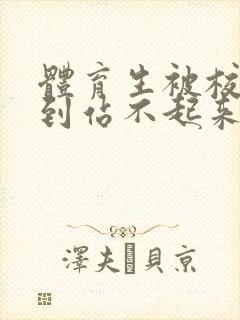 體育生被校
到佔不起來
澤夫 貝京